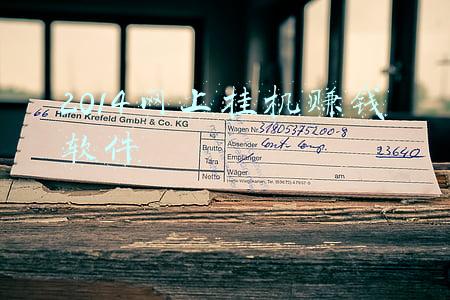 2014网上挂机赚钱
软件
66 Hafen Krefeld GmbH & Co. KG
kg
Wagen Nr. 31805375200-8
Brutto
Absender
Tara
Empfänger
23640
Wäger
am
Netto